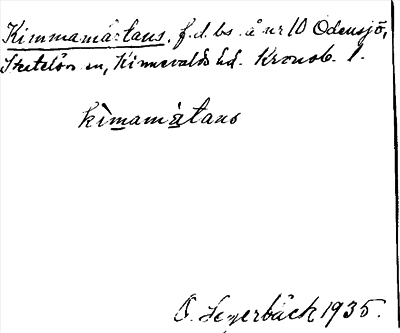 Kimmamårtans. f.d. bs. å nr 10 Odensjö,
Skatelövs sn, Kinnevalds hd. Kronob. l.
kìmamátans
O. Segerbäck 1935.